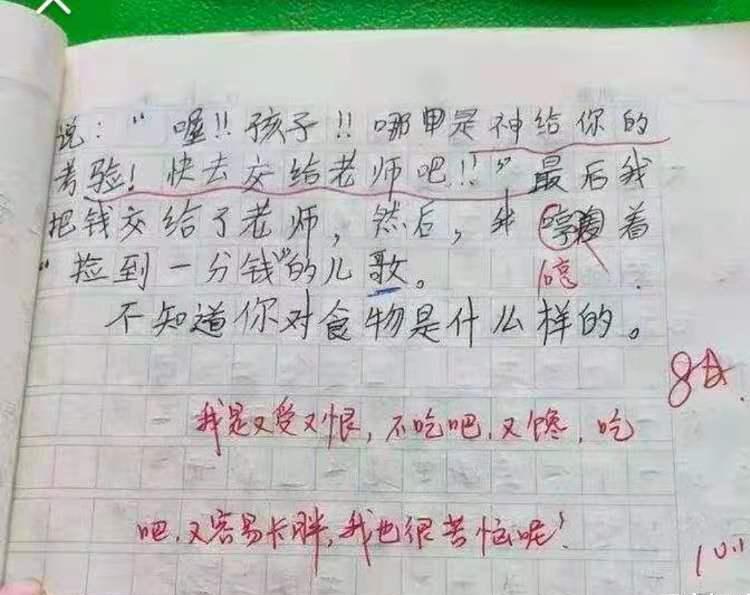 说：“喔!!孩子!!哪里是神给你的
考验!快去交给老师吧!!”最后我
把钱交给了老师，然后，我 着
“捡到一分钱”的儿歌。
哼
不知道你对食物是什么样的。
8
我是又爱又恨，不吃吧，又馋，吃
吧，又容易长胖，我也很苦恼呢!